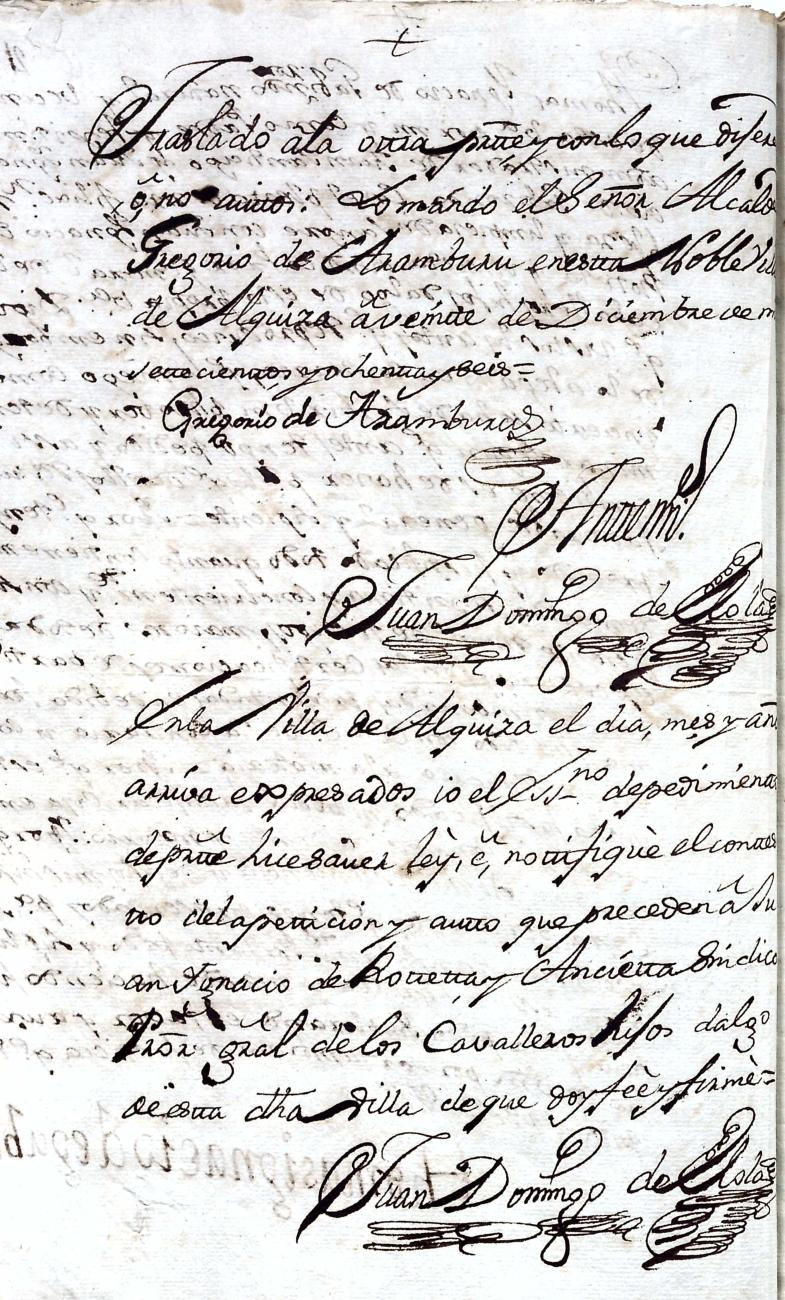 Traslado ala otra prtte y con lo que dijere
ô no auttos. Lo mando el Señor Alcalde
Gregorio de Aramburu en estta Noble Vill
de Alquiza â veintte de Diciembre de m
settecienttos, y ochentta y seis=
Gregorio de Aramburu
Antte mi
Juan Domingo de Olo
En la Villa de Alquiza el dia, mes y añ
arriva expresados io el Ss.no de pedimentto
de prtte hice saver leÿ, ê, nottifiquè el contte
tto dela petticion y autto que preceden â Ju
an Ignacio de Rottetta y Anciètta Sindico
Pror gral de los Cavalleros hijos dalgo
de estta dha villa de que doy feè y firmè=
Juan Domingo de Olo